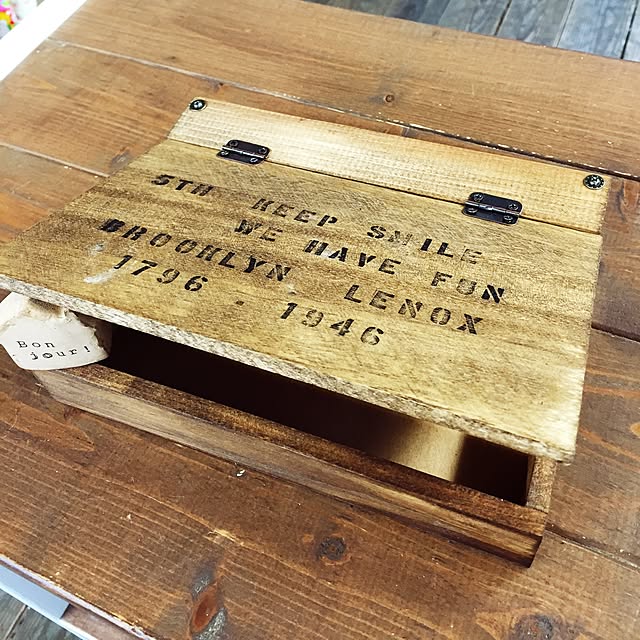 5TH KEEP SMILE
WE HAVE FUN
BROOHLYN LENOX
1796 · 1946
Bon
jour!